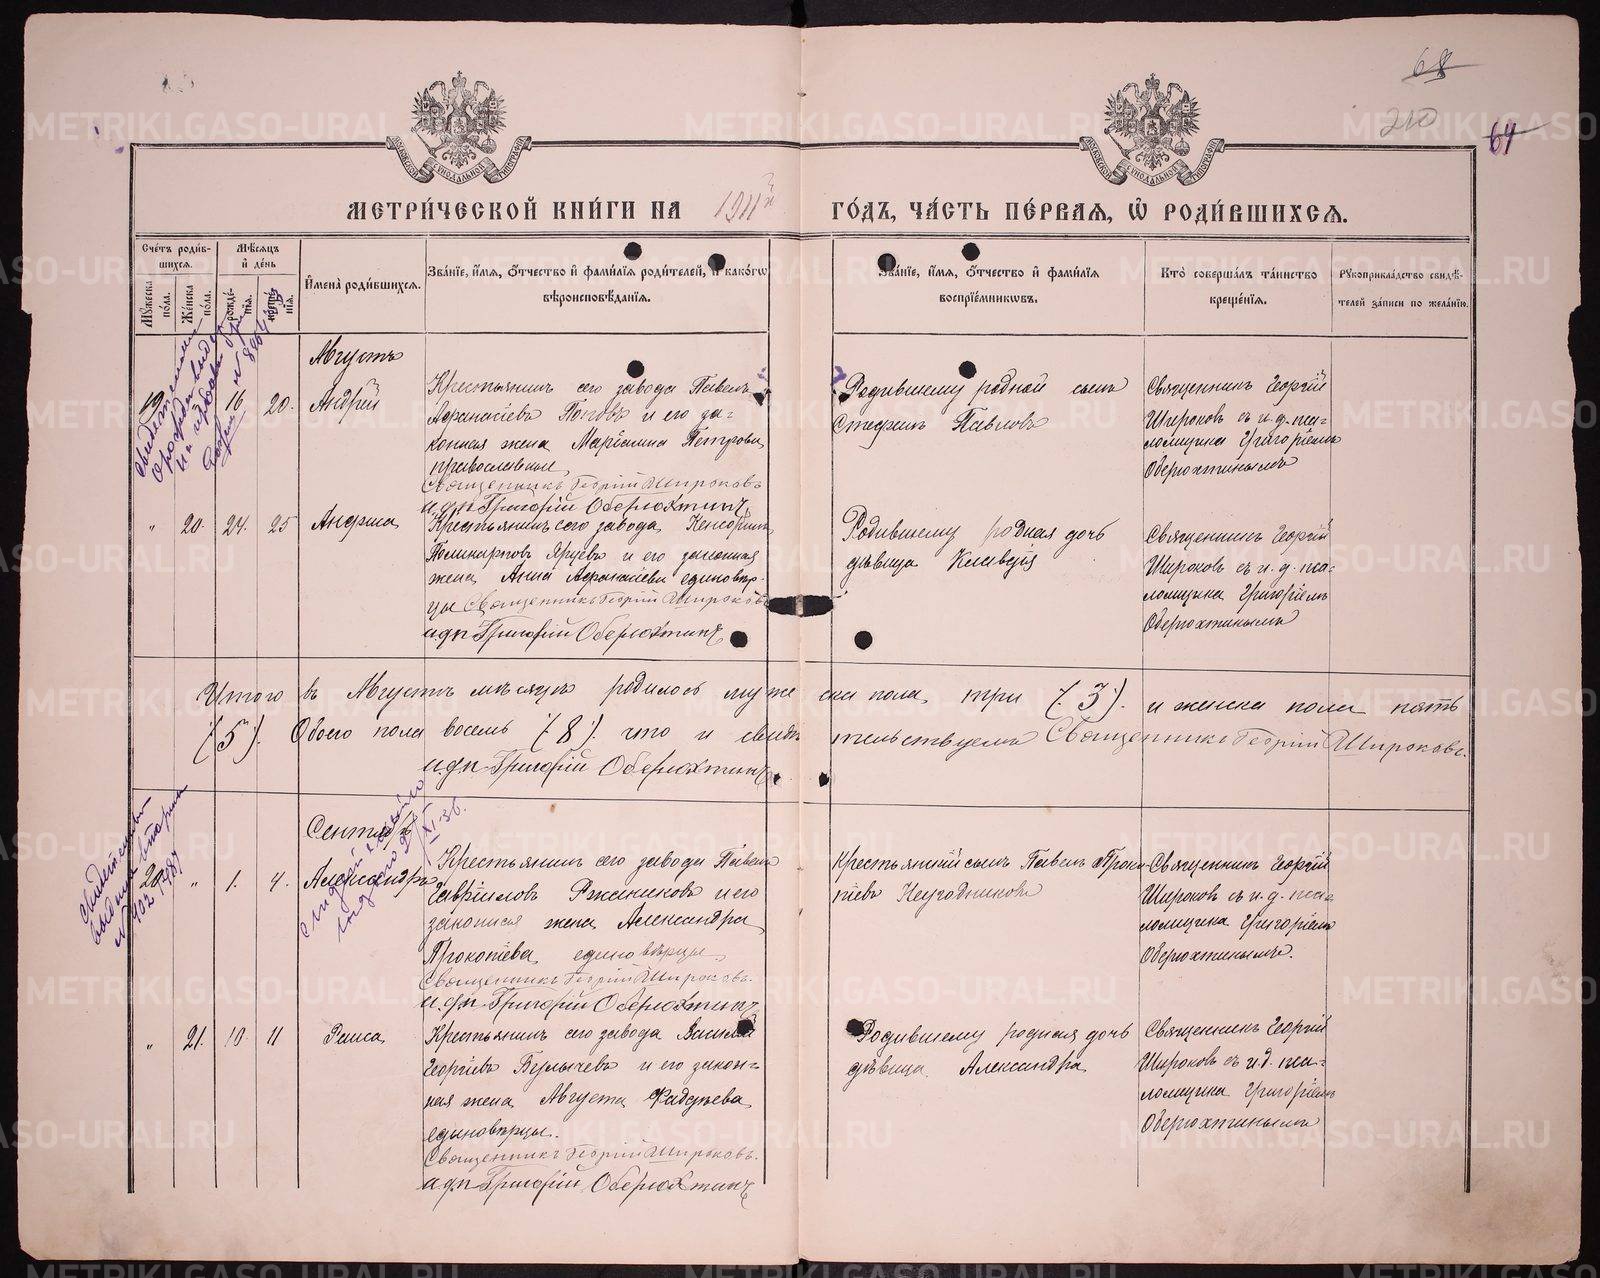 68
210
64
МОСКОВСКОЙ СѴНОДАЛЬНОЙ ТИПОГРАФІИ
МОСКОВСКОЙ СѴНОДАЛЬНОЙ ТИПОГРАФІИ
МЕТРИ́ЧЕСКОЙ КНИ́ГИ НА 1911й ГО́ДЪ, ЧА́СТЬ ПЕ́РВАѦ, Ѡ РОДИ́ВШИХСѦ.
Сче́тъ роди́в-шихсѧ.
Мꙋ́жеска по́ла.
Же́нска по́ла.
Мѣ́сѧцъ и҆ де́нь
рожде́-нїѧ.
креще́-нїѧ.
И҆мена̀ роди́вшихсѧ.
Зва́нїе, и҆́мѧ, ѻ҆́тчество и҆ фами́лїѧ роди́телей, и҆ како́гѡ
вѣроисповѣ́данїѧ.
Зва́нїе, и҆́мѧ, ѻ҆́тчество и҆ фами́лїѧ
воспрїе́мникѡвъ.
Кто̀ соверша́лъ та́инство
креще́нїѧ.
Рꙋкоприкла́дство свидѣ́-
телей за́писи по жела́нїю.
Августъ
19
16
20.
Андрей
Крестьянинъ сего завода Павелъ
Афанасіевъ Поповъ и его за=
конная жена Маріамна Петрова
православные
Священникъ Георгій Широковъ
и.д.п. Григорій Оберюхтинъ
Родившему родной сынъ
Стефанъ Павловъ
Священникъ Георгій
Широковъ съ и.д. пса-
ломщика Григоріемъ
Оберюхтинымъ
"
20.
24.
25
Анфиса
Крестьянинъ сего завода
Поликарповъ Ярцевъ и его законная
жена Анна Афанасіева единовѣр-
цы Священникъ Георгій Широковъ
и.д.п. Григорій Оберюхтинъ
Родившему родная дочь
дѣвица Клавдія
Священникъ Георгій
Широковъ съ и.д. пса-
ломщика Григоріемъ
Оберюхтинымъ
Итого въ Августѣ мѣсяцѣ родилось мужеска пола три (3). и женска пола пять
(5). Обоего пола восемь (8). что и свидѣтельствуемъ Священникъ Георгій Широковъ.
и.д.п. Григорій Оберюхтинъ.
Сентябрь
20
"
1.
4.
Александръ
Крестьянинъ сего завода Павелъ
Гавріиловъ Ржанниковъ и его
законная жена Александра
Прокопіева единовѣрцы
Священникъ Георгій Широковъ.
и.д.п. Григорій Оберюхтинъ
Крестьянскій сынъ Павелъ Проко-
піевъ Неугодниковъ
Священникъ Георгій
Широковъ съ и.д. пса-
ломщика Григоріемъ
Оберюхтинымъ.
"
21.
10.
11
Раиса
Крестьянинъ сего завода Василій
Георгіевъ Булычевъ и его закон=
ная жена Августа Фаддѣева
единовѣрцы.
Священникъ Георгій Широковъ.
и.д.п. Григорій Оберюхтинъ
Родившему родная дочь
дѣвица Александра
Священникъ Георгій
Широковъ съ и.д. пса-
ломщика Григоріемъ
Оберюхтинымъ
METRIKI.GASO-URAL.RU